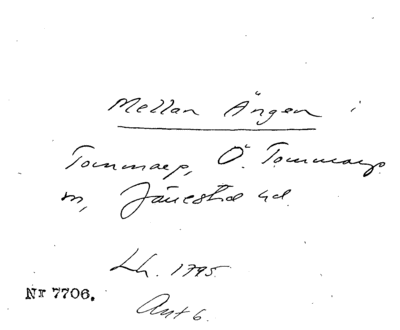 Mellan Ängen i
Tommarp, Ö. Tommarps
sn, Järrestad hd.
Lh. 1795
Nr 7706.
Akt 6.